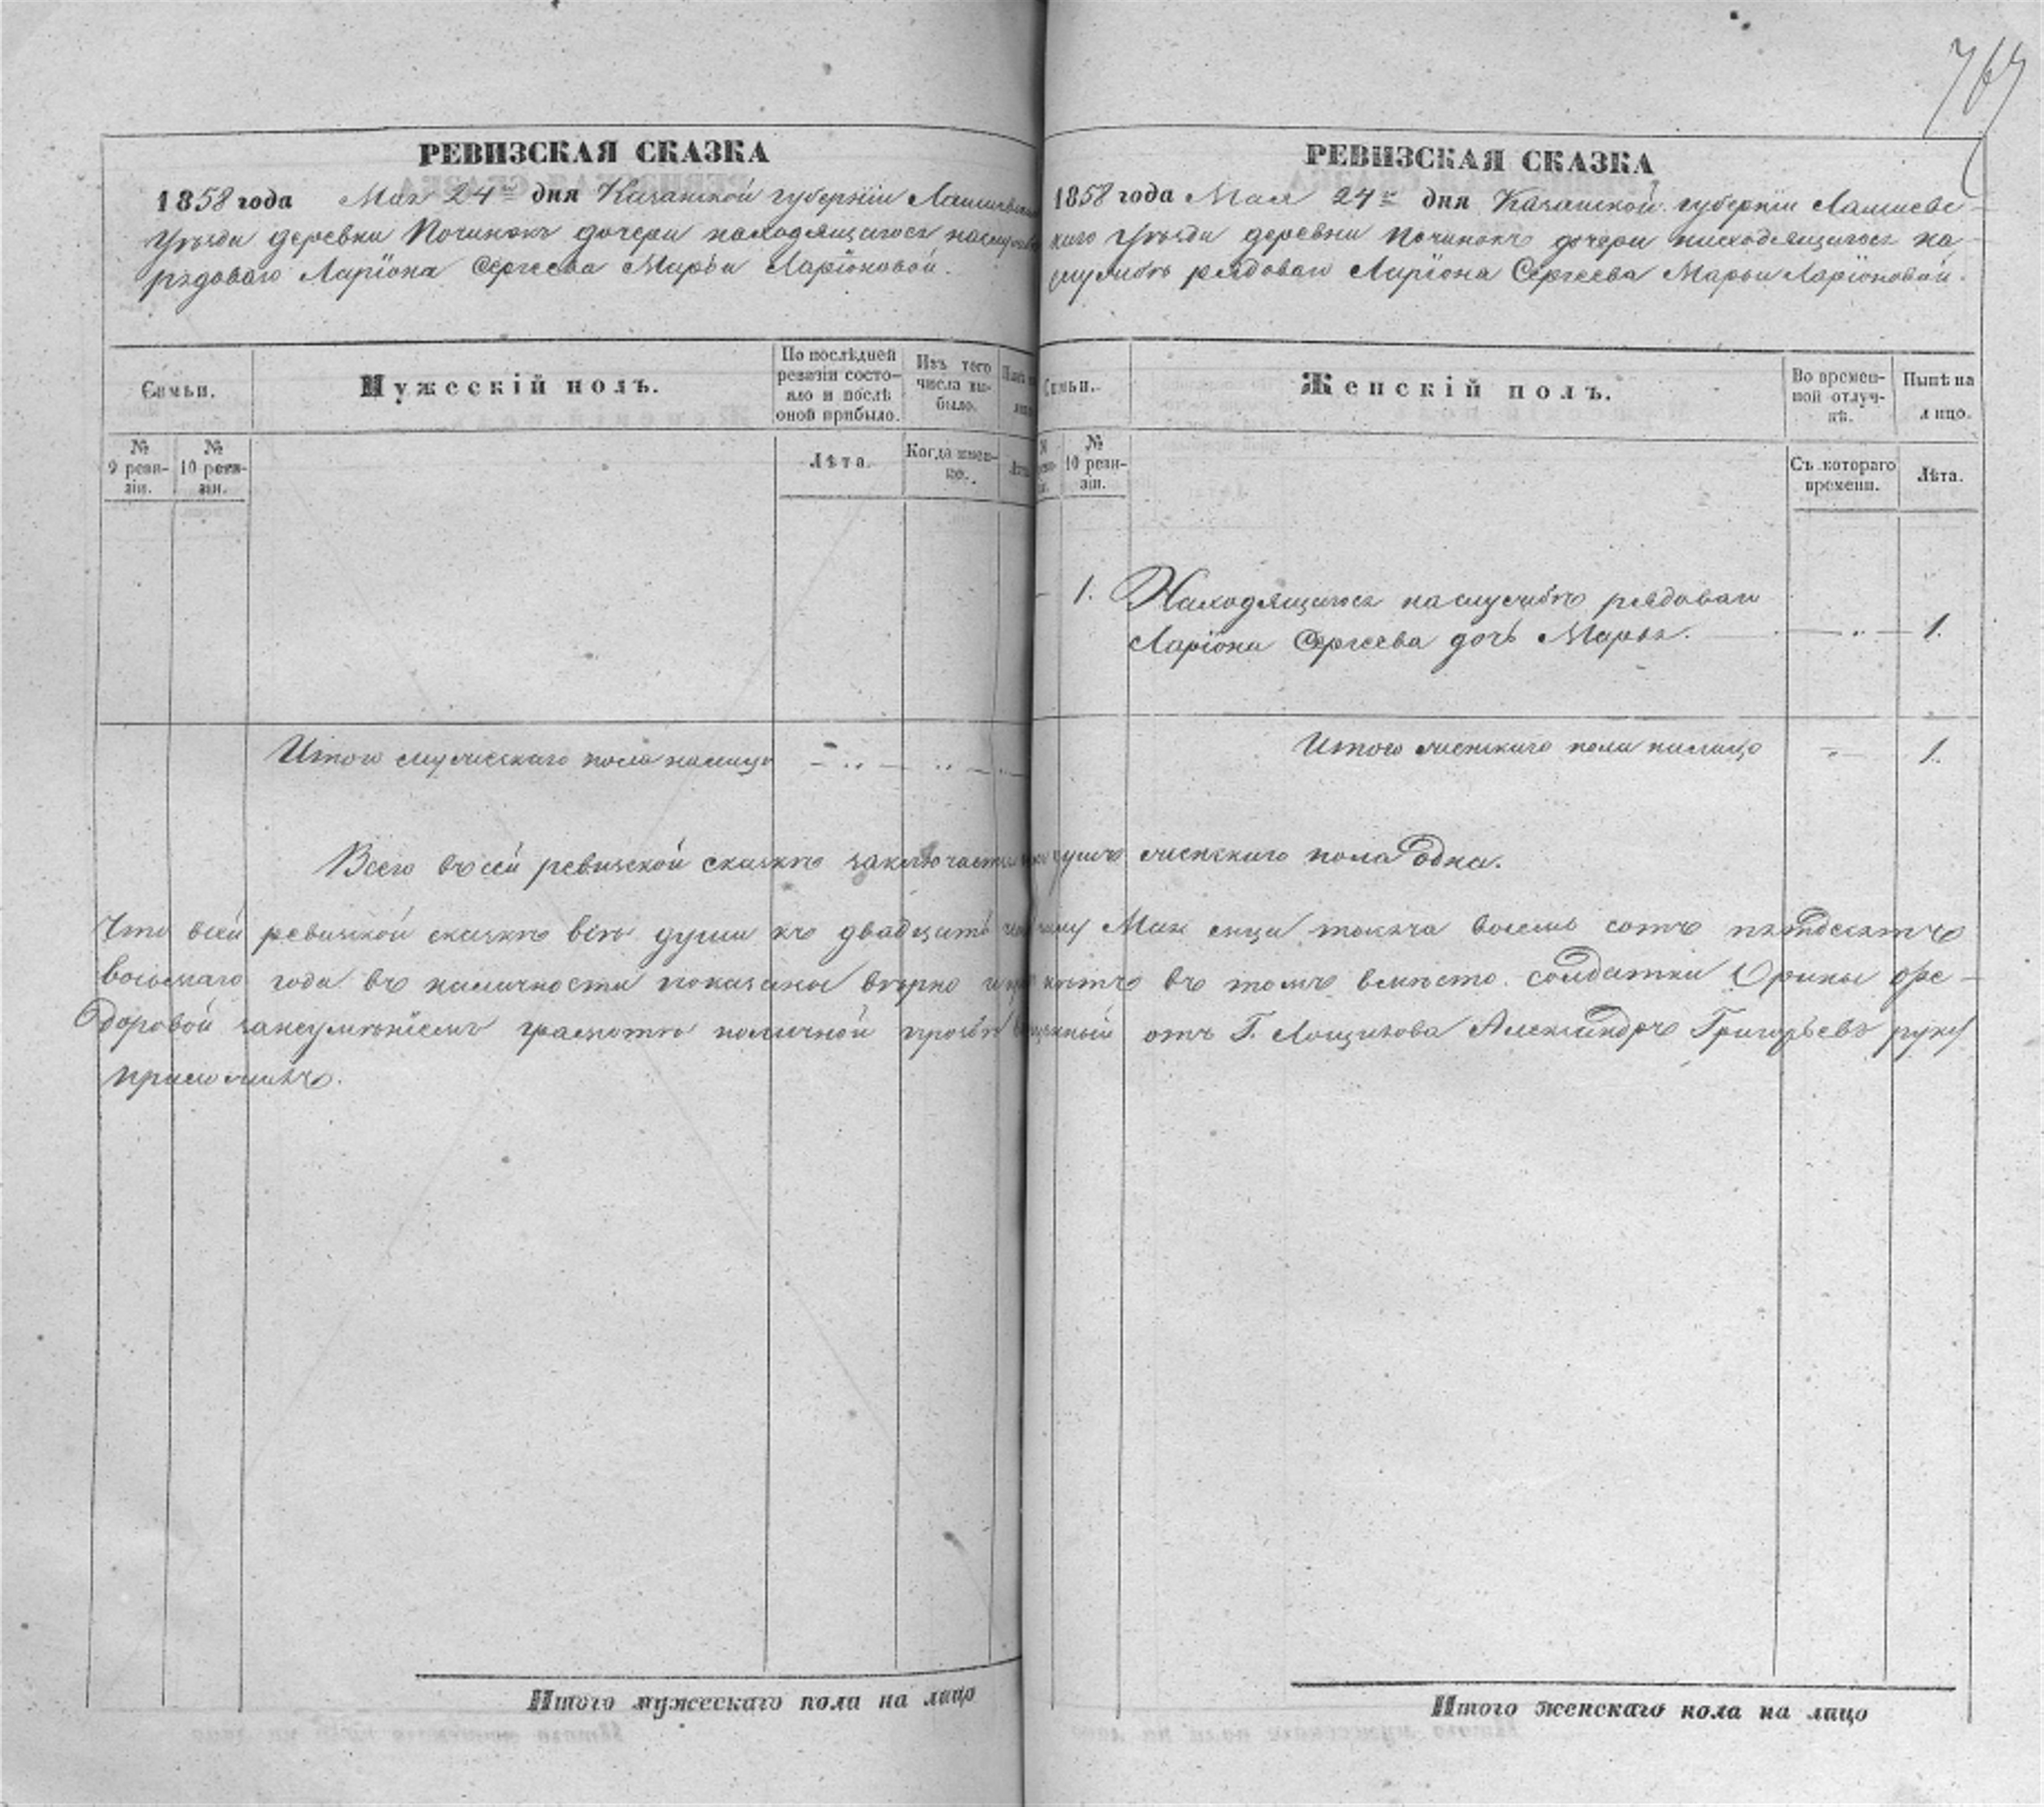 769
РЕВИЗСКАЯ СКАЗКА
1858 года Мая 24го дня Казанской губернiи Лаишевска
Уѣзда деревни Починокъ дочери находящагося на службѣ
рядоваго Ларiона Сергеева Марьи Ларiоновой.
Семьи.
Мужескiй полъ.
По послѣднeй
ревизiи состо-
яло и послѣ
оной прибыло.
Изъ того
числа вы-
было.
№
9 реви-
зiи.
№
10 реви-
зiи.
Лѣта.
Когда имен-
но.
Итого мужескаго пола налицо
РЕВИЗСКАЯ СКАЗКА
1858 года Мая 24го дня Казанской губернiи Лаишевс-
каго Уѣзда деревни Починокъ дочери находящагося на
службѣ рядоваго Ларiона Сергеева Марьи Ларiоновой.
Семьи.
Женскiй полъ.
Во времен-
ной отлуч-
кѣ.
Нынѣ на
лицо.
№
10 реви-
зiи.
Съ котораго
времени.
Лѣта.
1. Находящагося на службѣ рядоваго
Ларiона Сергеева дочь Марья. 1.
Итого женскаго пола налицо 1.
Всего въ сей ревизской сказкѣ заключается душъ женскаго пола одна.
Что въ сей ревизской сказкѣ всѣ души къ двадцать Мая сего тысяча восемь сотъ пятдесятъ
восьмаго года въ наличности показаны вѣрно въ томъ вместо солдатки Орины Фе-
доровой за неумѣнiемъ грамотѣ по личной прозбѣ отъ Г. Лощилова Александръ Григорьевъ руку
приложилъ.
Итого мужескаго пола на лицо
Итого женскаго пола на лицо